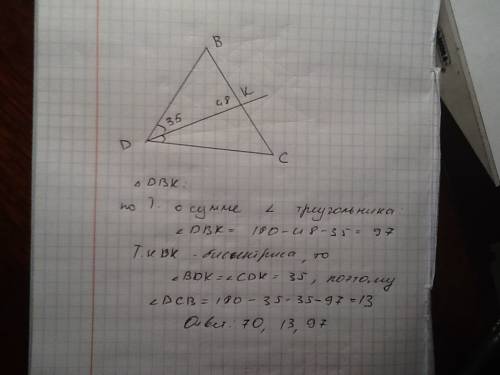 B
35
48
K
D
C
△DBK:
по Т. о сумме ∠ треугольника:
∠DBK = 180-48-35 = 97
Т.к DK - биссектриса, то
∠BDK = ∠CDK = 35, поэтому
∠DCB = 180 - 35 - 35 - 97 = 13
Ответ: 70, 13, 97